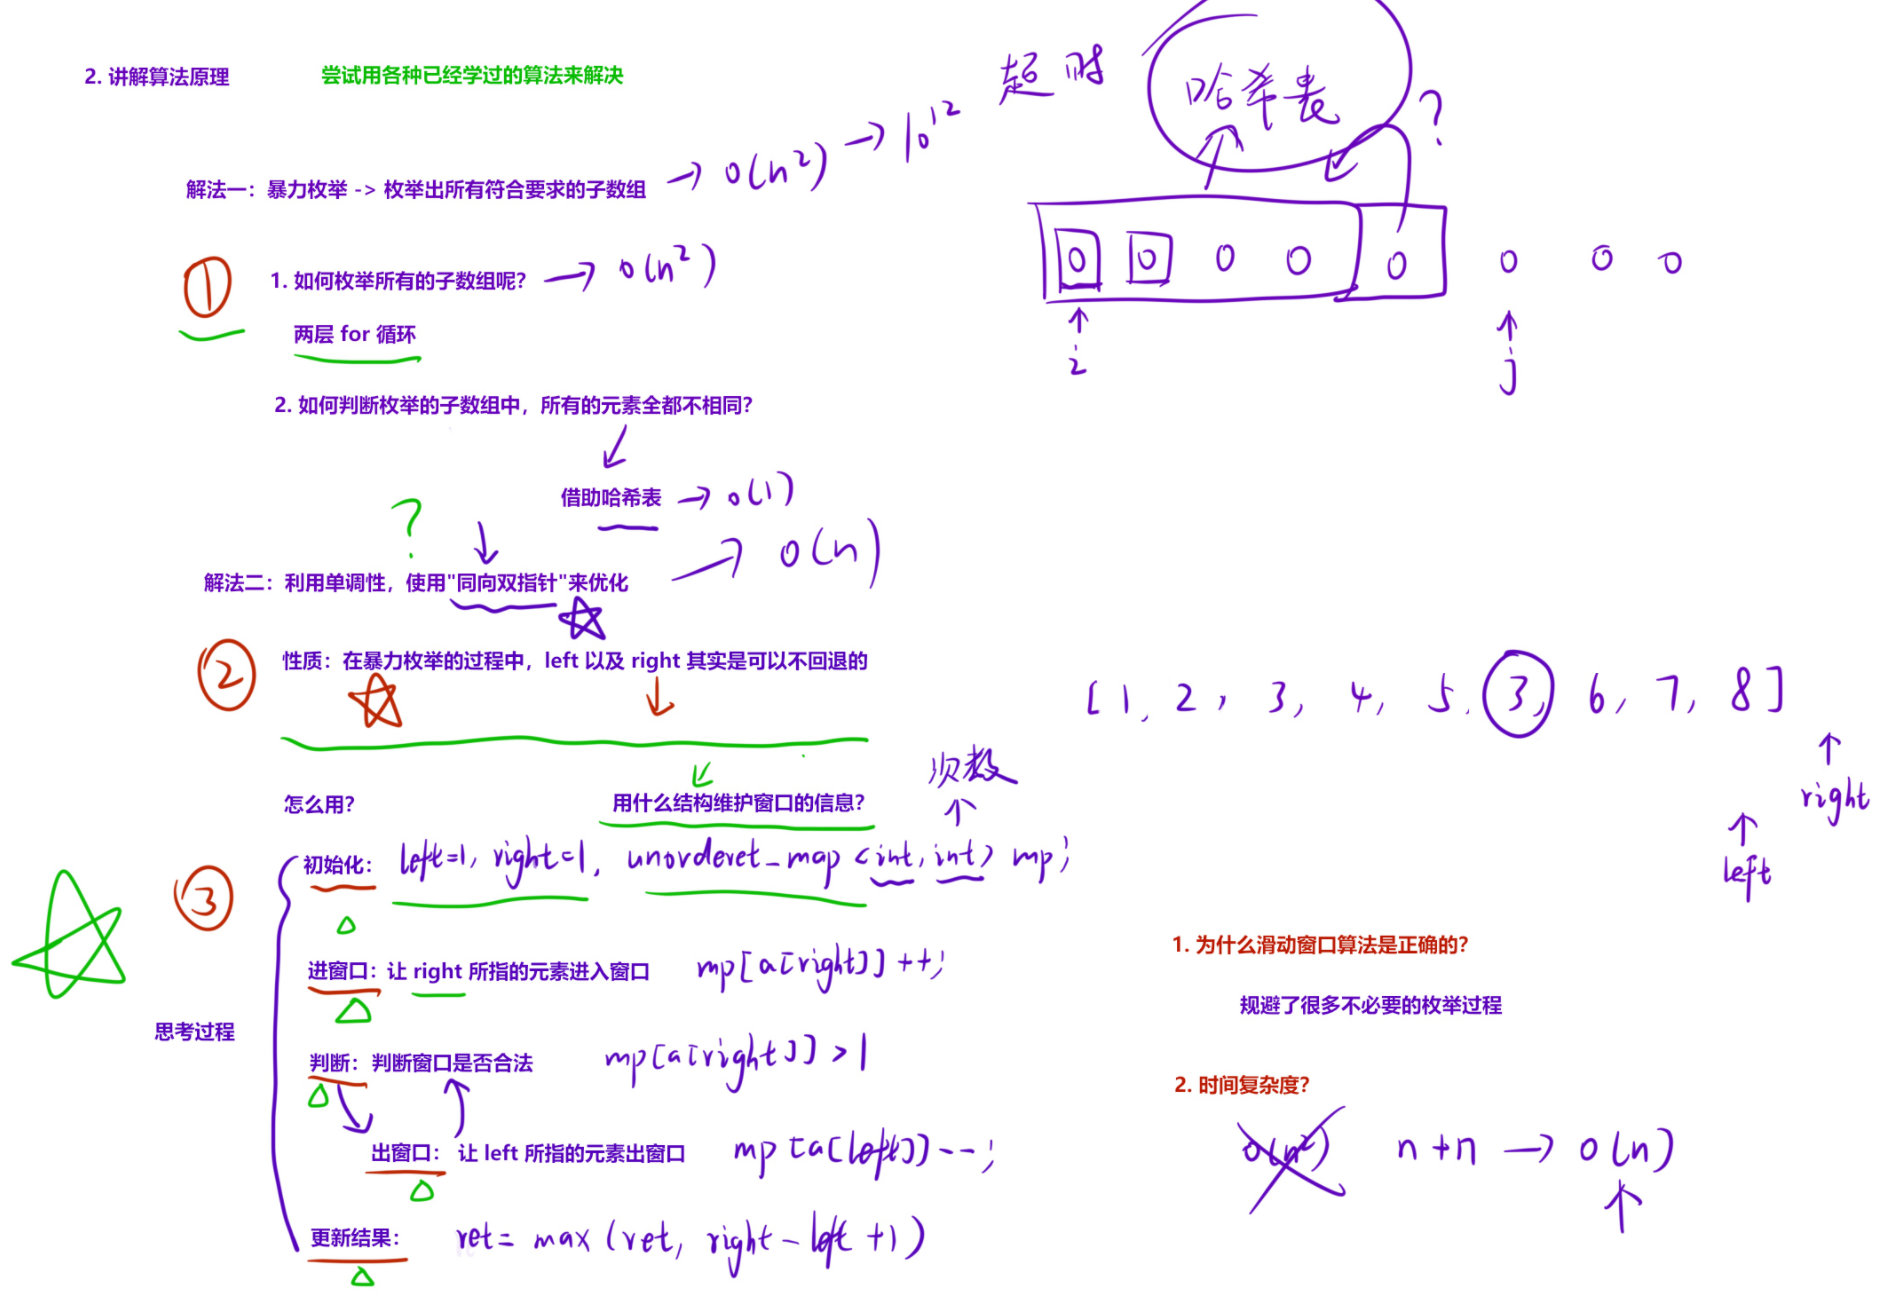 2. 讲解算法原理 尝试用各种已经学过的算法来解决
超时 哈希表 ?
解法一：暴力枚举 -> 枚举出所有符合要求的子数组 → O(n²) → 10¹²
0 0 0 0 0 0 0 0
i j
① 1. 如何枚举所有的子数组呢？ → O(n²)
两层 for 循环
2. 如何判断枚举的子数组中，所有的元素全都不相同？
借助哈希表 → O(1)
?
解法二：利用单调性，使用"同向双指针"来优化 → O(n)
② 性质：在暴力枚举的过程中，left 以及 right 其实是可以不回退的
[1, 2, 3, 4, 5, 3, 6, 7, 8]
right
left
怎么用？ 用什么结构维护窗口的信息？ 次数
③ 初始化： left=1, right=1, unorderet_map <int, int> mp;
进窗口：让 right 所指的元素进入窗口 mp[a[right]]++;
思考过程
判断：判断窗口是否合法 mp[a[right]] > 1
出窗口： 让 left 所指的元素出窗口 mp[a[left]]--;
更新结果： ret = max(ret, right - left + 1)
1. 为什么滑动窗口算法是正确的？
规避了很多不必要的枚举过程
2. 时间复杂度？
O(n²) n+n → O(n)